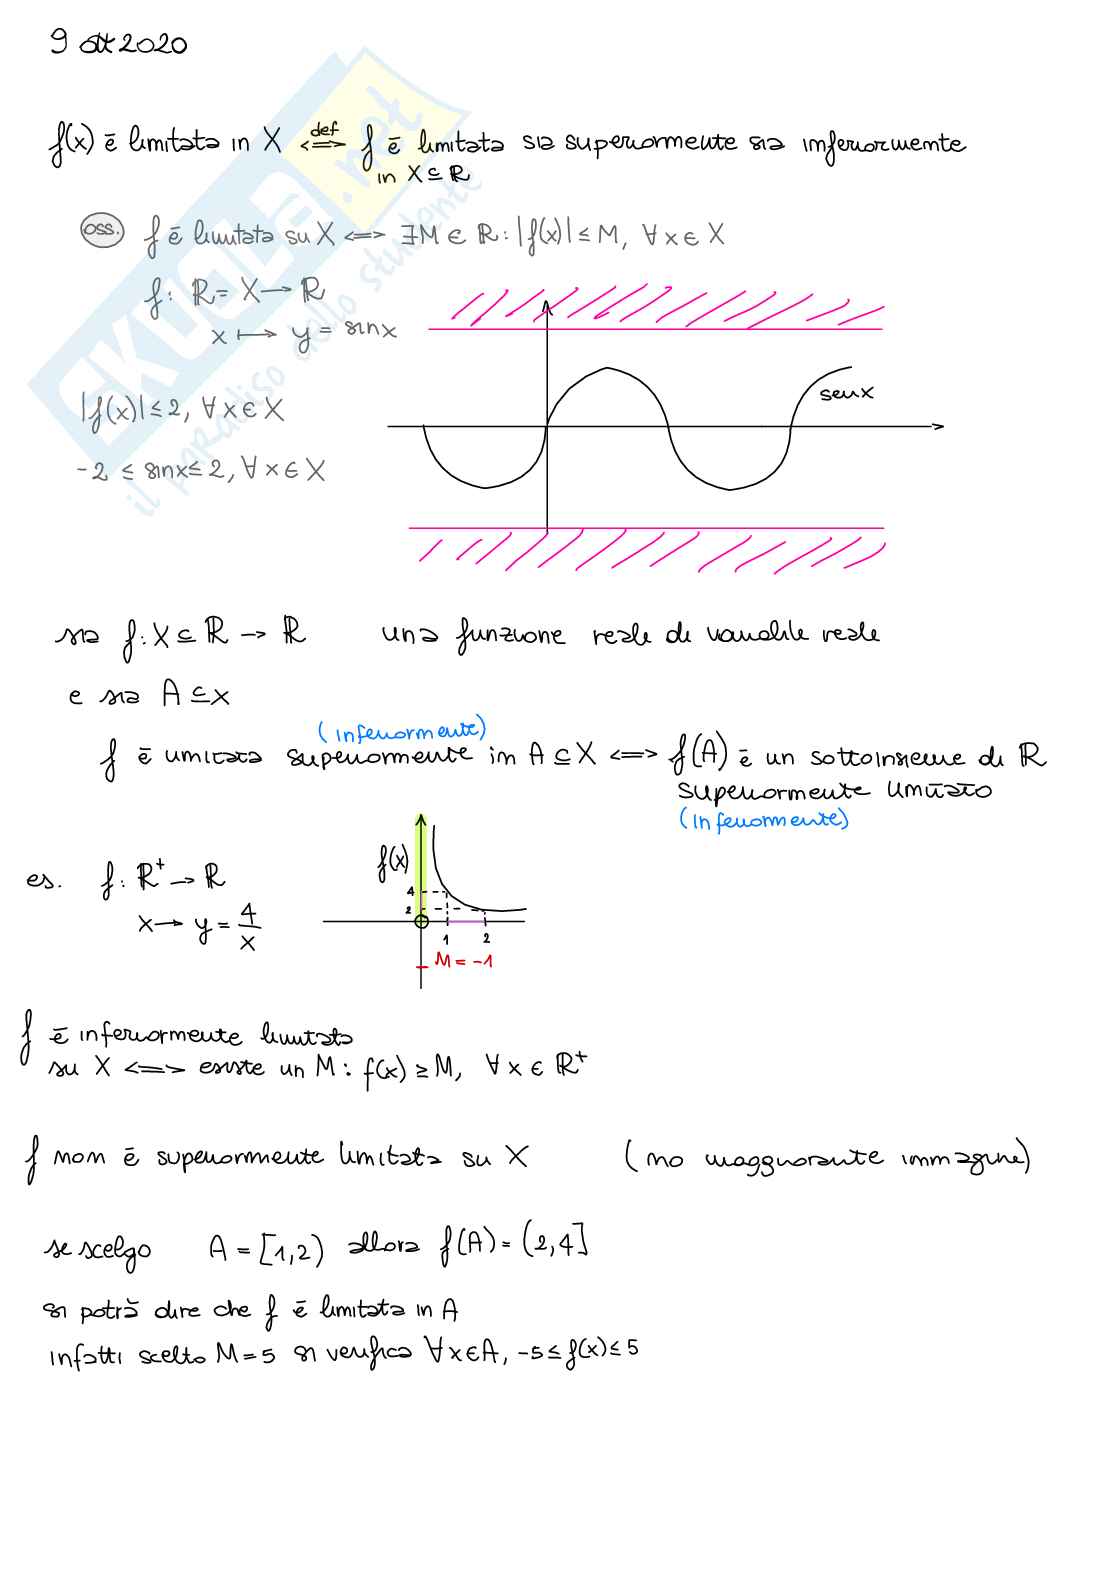 9 ott 2020
f(x) è limitata in X <=> def f è limitata sia superiormente sia inferiormente
in X ⊆ ℝ
oss. f è limitata su X <=> ∃M ∈ ℝ : |f(x)| ≤ M, ∀x ∈ X
f: ℝ = X → ℝ
x ↦ y = sinx
senx
|f(x)| ≤ 2, ∀x ∈ X
-2 ≤ sinx ≤ 2, ∀x ∈ X
SKUOLA.net
il paradiso dello studente
sia f: X ⊆ ℝ → ℝ una funzione reale di variabile reale
e sia A ⊆ X
(inferiormente)
f è limitata superiormente in A ⊆ X <=> f(A) è un sottoinsieme di ℝ
superiormente limitato
(inferiormente)
es. f: ℝ⁺ → ℝ
x → y = 4/x
f(x)
4
2
1 2
M = -1
f è inferiormente limitata
su X <=> esiste un M : f(x) ≥ M, ∀x ∈ ℝ⁺
f non è superiormente limitata su X (no maggiorante immagine)
se scelgo A = [1,2) allora f(A) = (2,4]
si potrà dire che f è limitata in A
infatti scelto M = 5 si verifica ∀x ∈ A, -5 ≤ f(x) ≤ 5